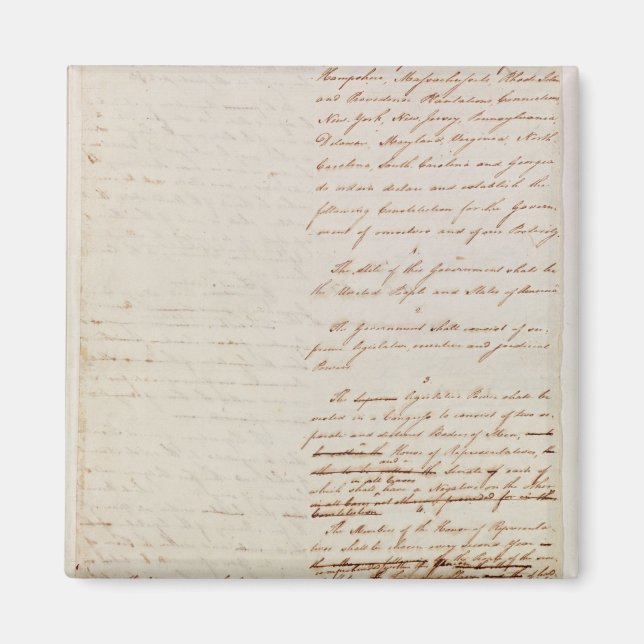 Hampshire, Massachusetts, Rhode Island
and Providence Plantations, Connecticut,
New York, New Jersey, Pennsylvania,
Delaware, Maryland, Virginia, North
Carolina, South Carolina and Georgia
do ordain declare and establish the
following Constitution for the Govern-
-ment of ourselves and of our Posterity.
1.
The Stile of this Government shall be
the United People and States of America
2
The Government shall consist of su-
preme legislative, executive and judicial
Powers
3
The supreme legislative Power shall be
vested in a Congress to consist of two se-
parate and distinct Bodies of Men, one to
be called the House of Representatives, the
and a
other to be called the Senate of each of
in all Cases
which shall have a Negative on the other
in all Cases not otherwise provided for in this
Constitution 4.
The Members of the House of Representa-
tives shall be chosen every second Year in
the People of the